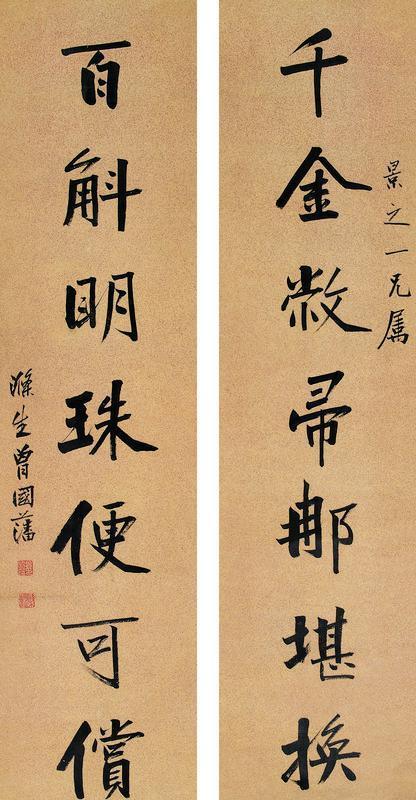 景之一兄属
千金敝帚那堪換
百斛明珠便可償
滌生曾國藩